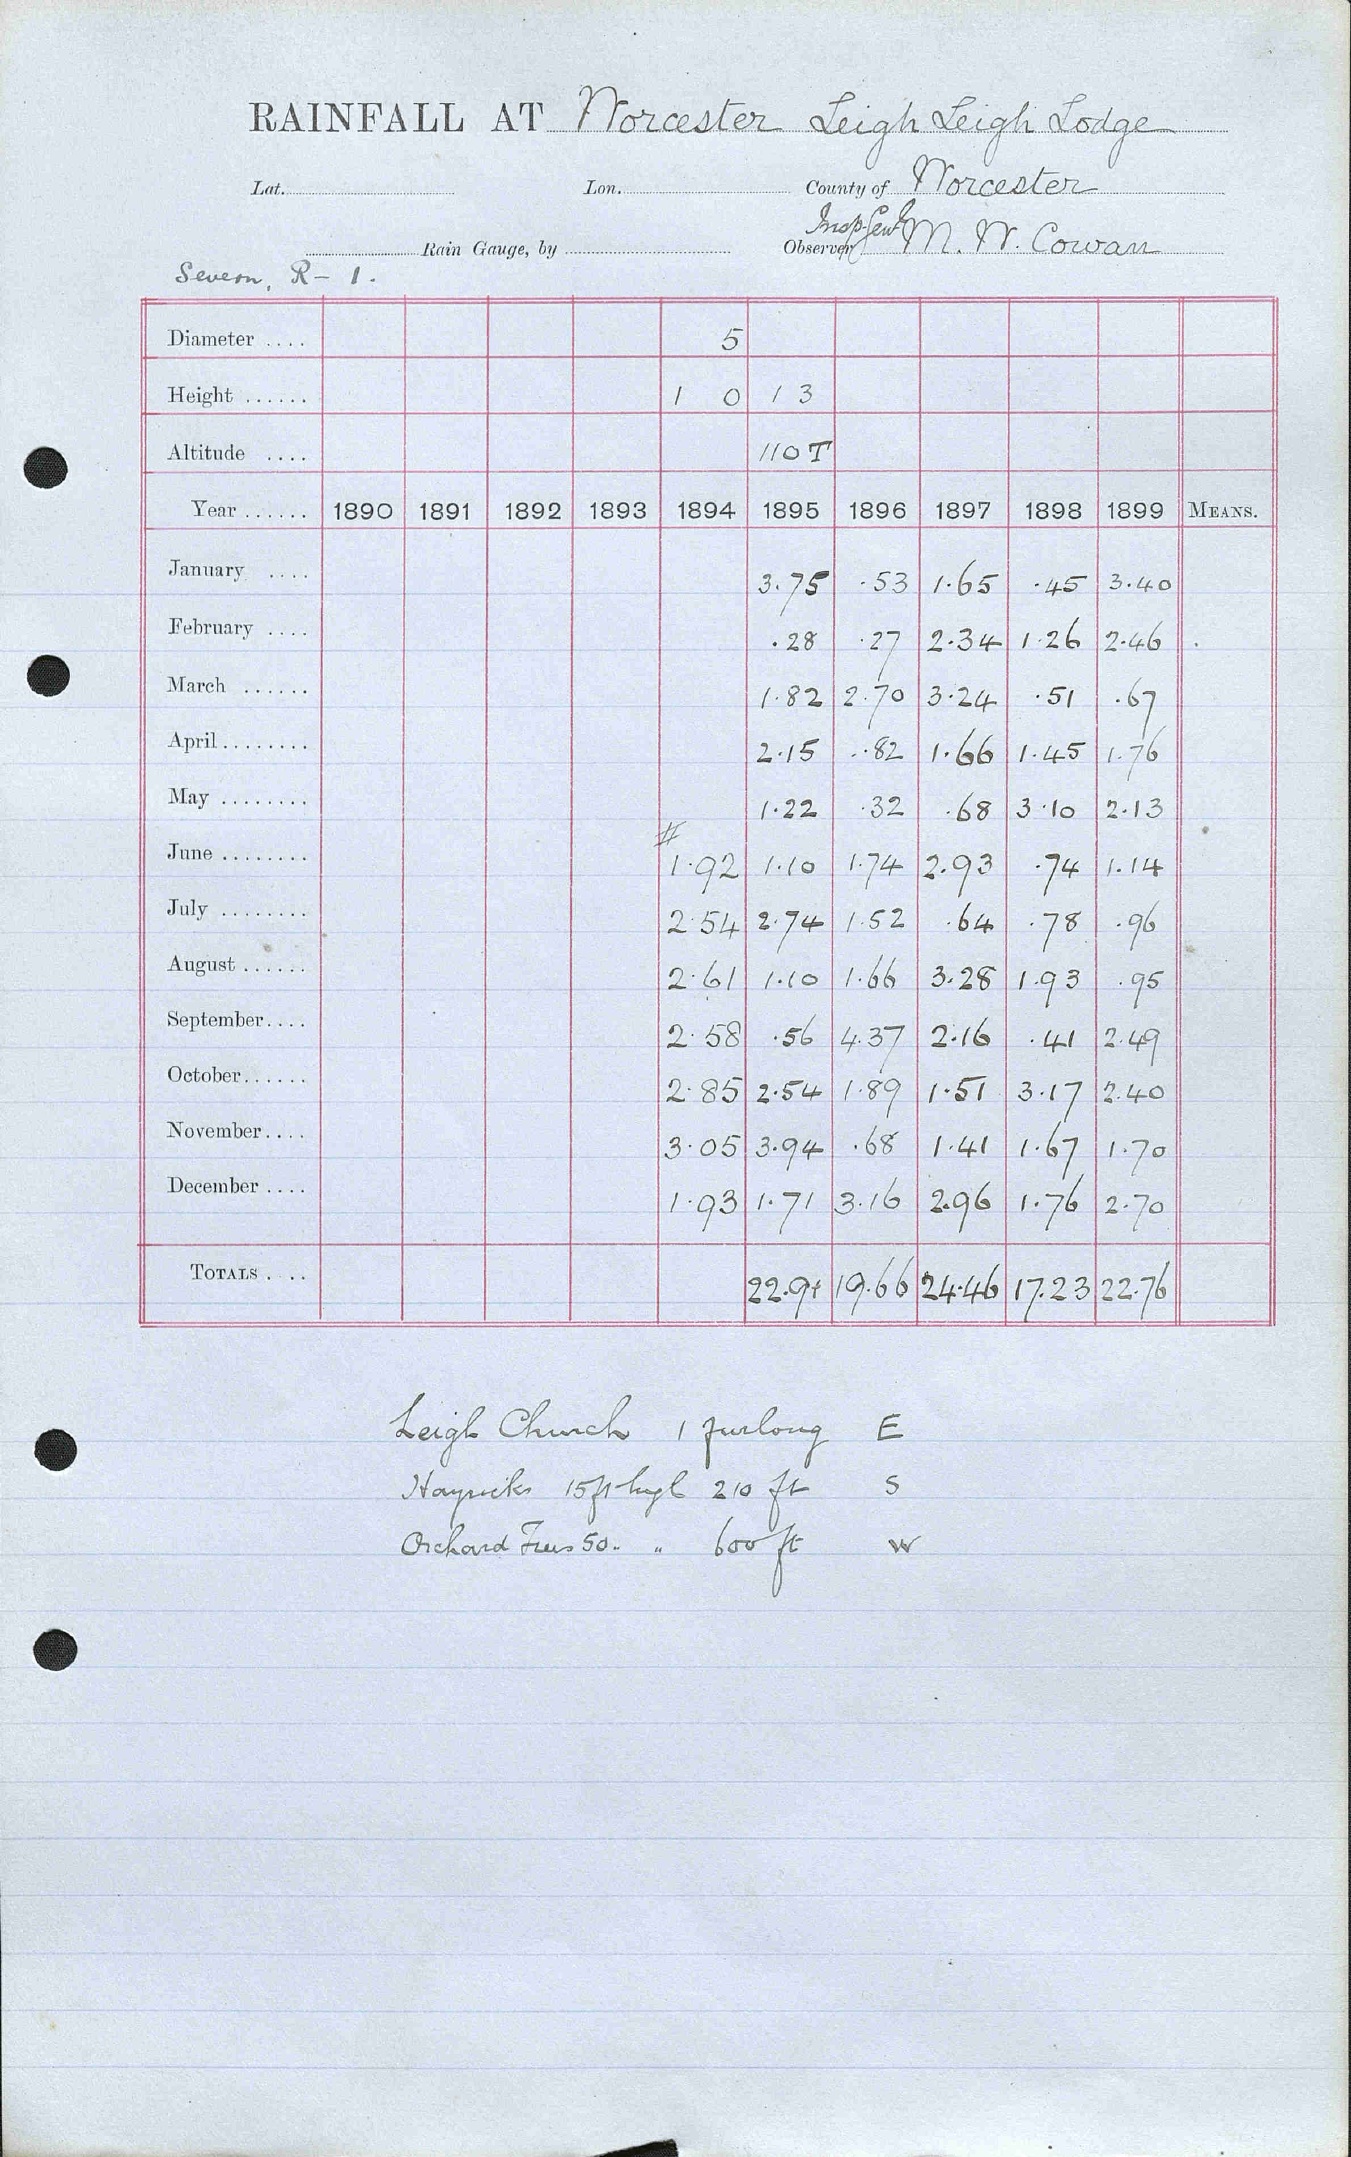 RAINFALL AT Worcester Leigh Leigh Lodge
Lat. Lon. County of Worcester
Rain Gauge, by Observer Insp. Genl. M. W. Cowan
Severn, R - 1.
Diameter .... 5
Height ...... 1 0 1 3
Altitude .... 110 T
Year ...... 1890 1891 1892 1893 1894 1895 1896 1897 1898 1899 MEANS.
January .... 3.75 .53 1.65 .45 3.40
February .... .28 .27 2.34 1.26 2.46
March ...... 1.82 2.70 3.24 .51 .67
April ........ 2.15 .82 1.66 1.45 1.76
May ........ 1.22 .32 .68 3.10 2.13
#
June ........ 1.92 1.10 1.74 2.93 .74 1.14
July ........ 2.54 2.74 1.52 .64 .78 .96
August ...... 2.61 1.10 1.66 3.28 1.93 .95
September .... 2.58 .56 4.37 2.16 .41 2.49
October ...... 2.85 2.54 1.89 1.51 3.17 2.40
November .... 3.05 3.94 .68 1.41 1.67 1.70
December .... 1.93 1.71 3.16 2.96 1.76 2.70
TOTALS .... 22.91 19.66 24.46 17.23 22.76
Leigh Church 1 furlong E
Hayricks 15 ft high 210 ft S
Orchard Trees 50 " " 600 ft W